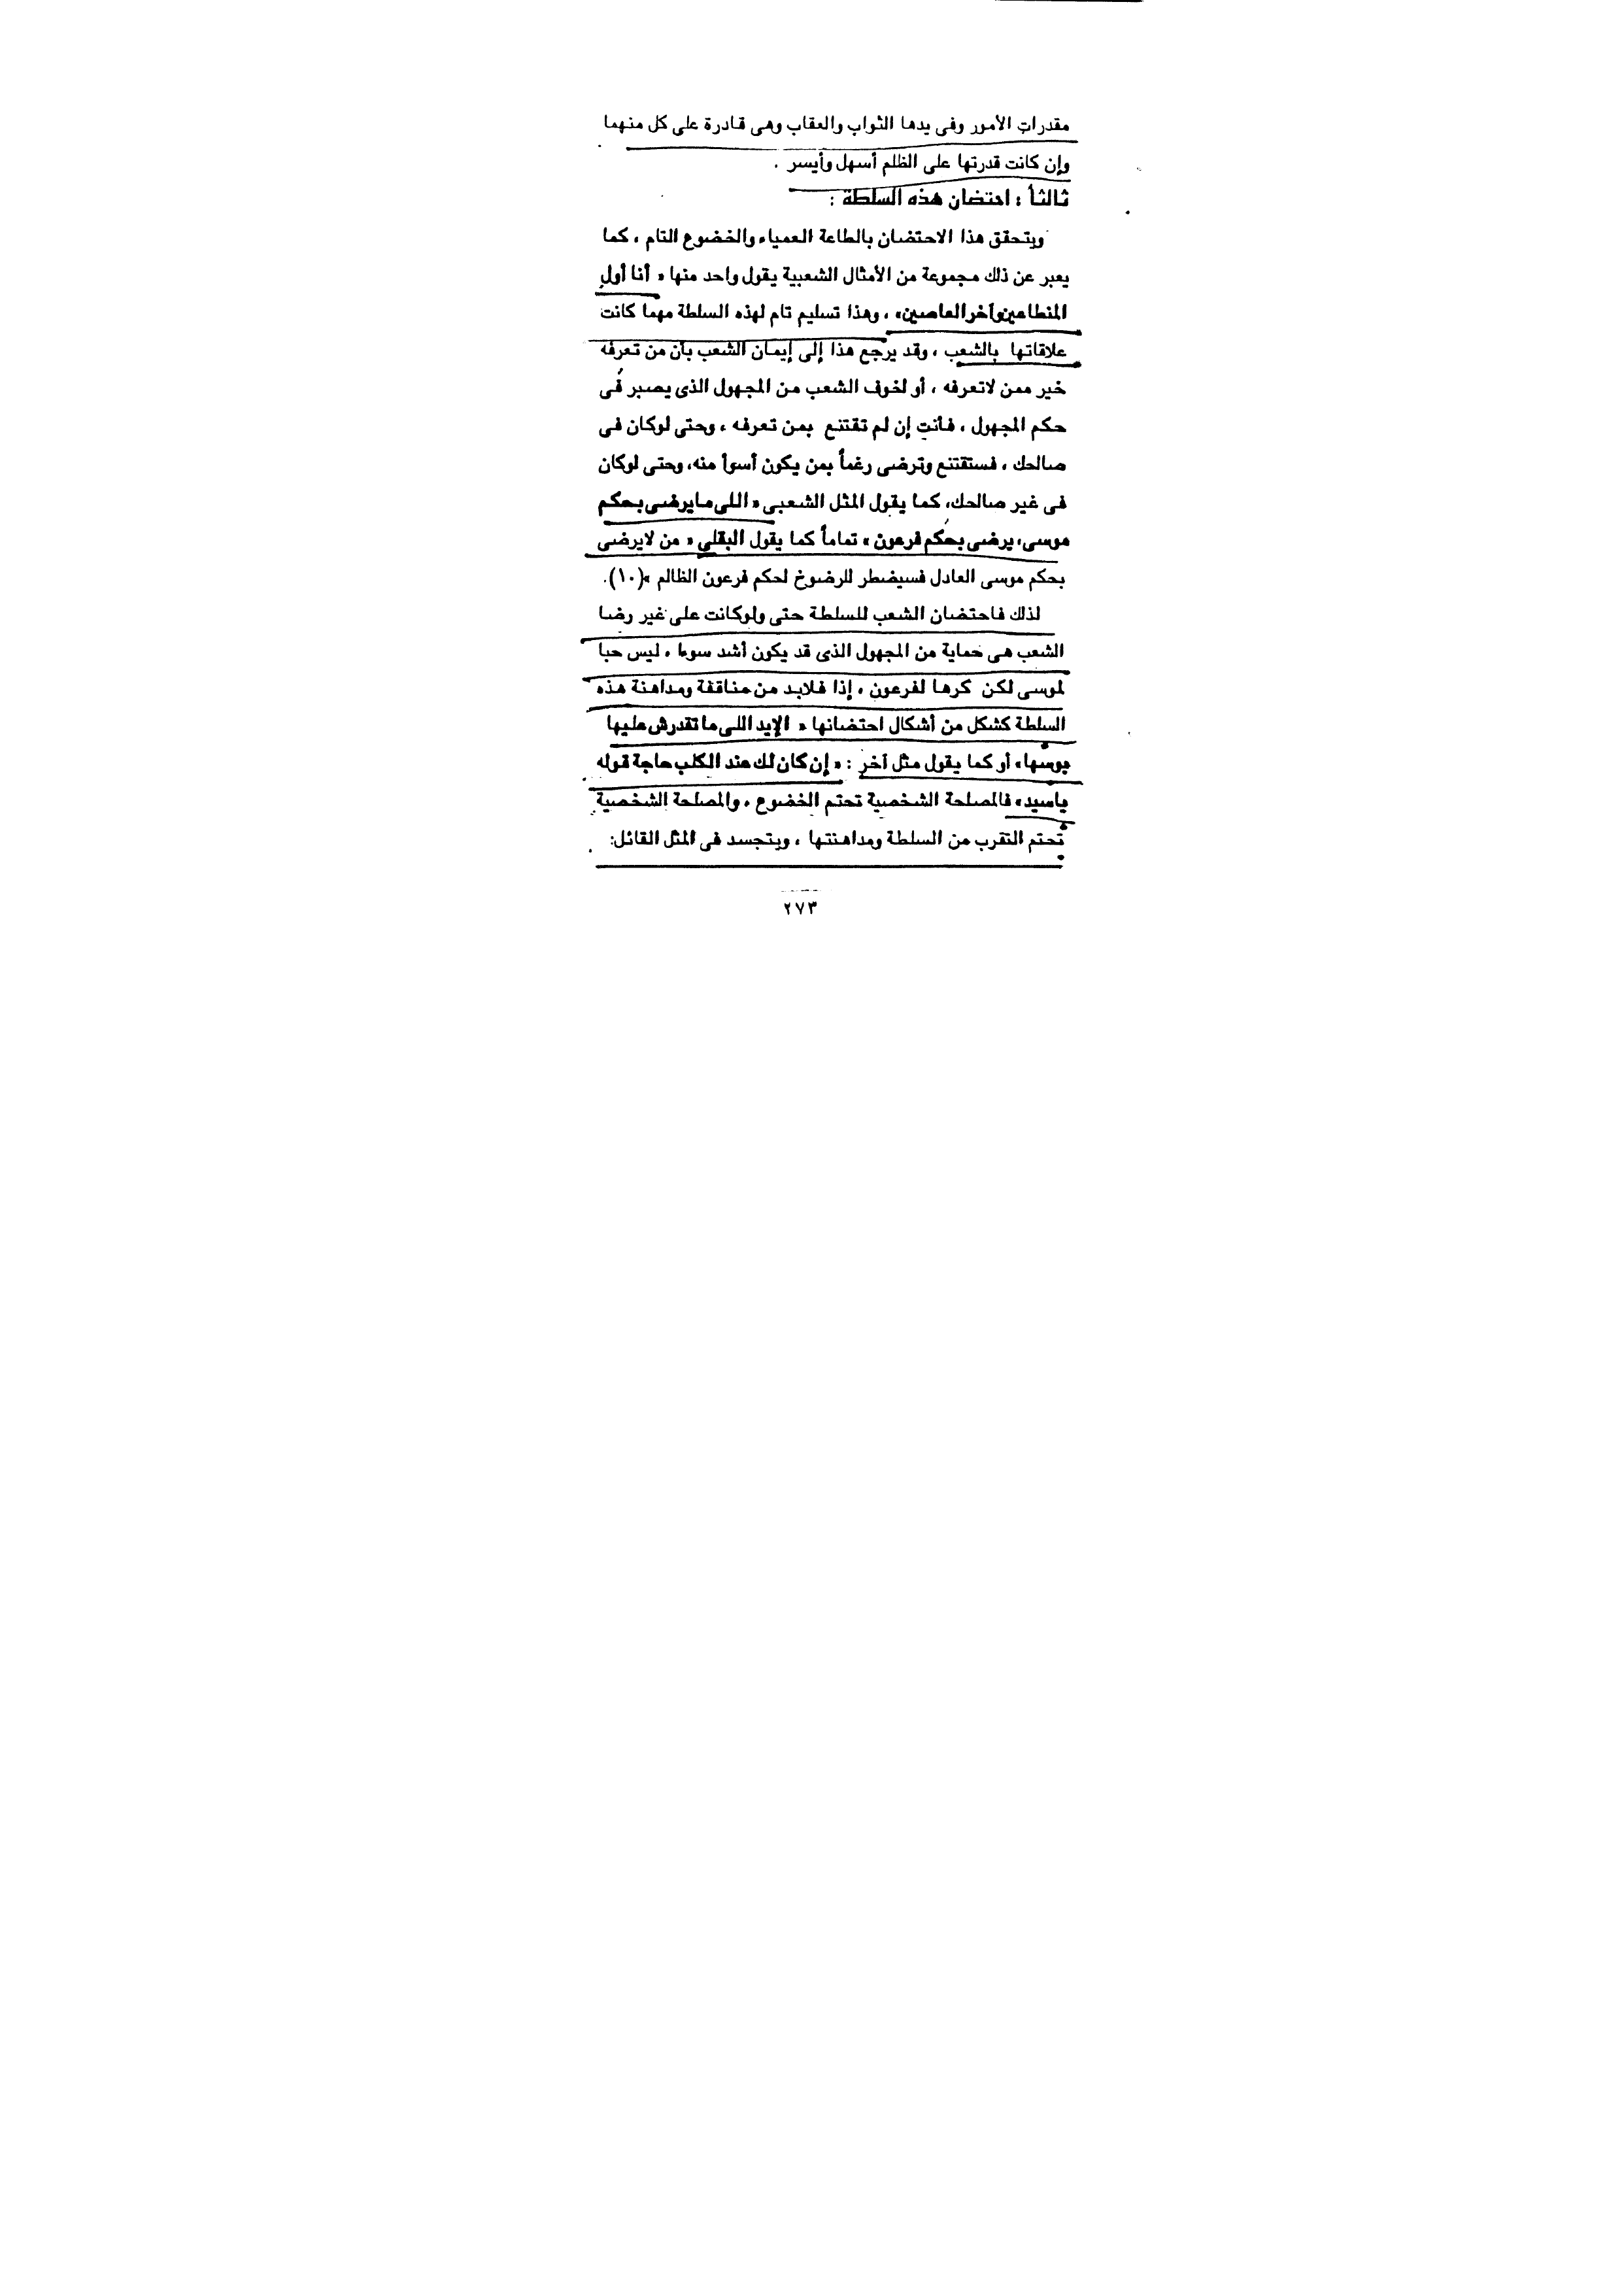 مقدرات الأمور وفى يدها الثواب والعقاب وهى قادرة على كل منهما
وإن كانت قدرتها على الظلم أسهل وأيسر .
ثالثاً : احتضان هذه السلطة :
ويتحقق هذا الاحتضان بالطاعة العمياء والخضوع التام ، كما
يعبر عن ذلك مجموعة من الأمثال الشعبية يقول واحد منها « أنا أول
المنطاعين وآخر العاصين» ، وهذا تسليم تام لهذه السلطة مهما كانت
علاقاتها بالشعب ، وقد يرجع هذا إلى إيمان الشعب بأن من تعرفه
خير ممن لاتعرفه ، أو لخوف الشعب من المجهول الذى يصبر فى
حكم المجهول ، فأنت إن لم تقتنع بمن تعرفه ، وحتى لوكان فى
صالحك ، فستقتنع وترضى رغماً بمن يكون أسوأ منه، وحتى لوكان
فى غير صالحك، كما يقول المثل الشعبى « اللى مايرضى بحكم
موسى، يرضى بحكم فرعون » تماماً كما يقول البقلي « من لايرضى
بحكم موسى العادل فسيضطر للرضوخ لحكم فرعون الظالم »(١٠).
لذلك فاحتضان الشعب للسلطة حتى ولوكانت على غير رضا
الشعب هى حماية من المجهول الذى قد يكون أشد سوءا ، ليس حبا
لموسى لكن كرها لفرعون ، إذا فلابد من منافقة ومداهنة هذه
السلطة كشكل من أشكال احتضانها « الإيد اللى ماتقدرش عليها
بوسها» أو كما يقول مثل آخر : « إن كان لك عند الكلب حاجة قوله
ياسيد» فالمصلحة الشخصية تحتم الخضوع ، والمصلحة الشخصية
تحتم التقرب من السلطة ومداهنتها ، ويتجسد فى المثل القائل:
٢٧٣